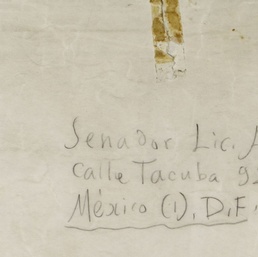 Senador Lic. A
Calle Tacuba 9
México (1), D.F.